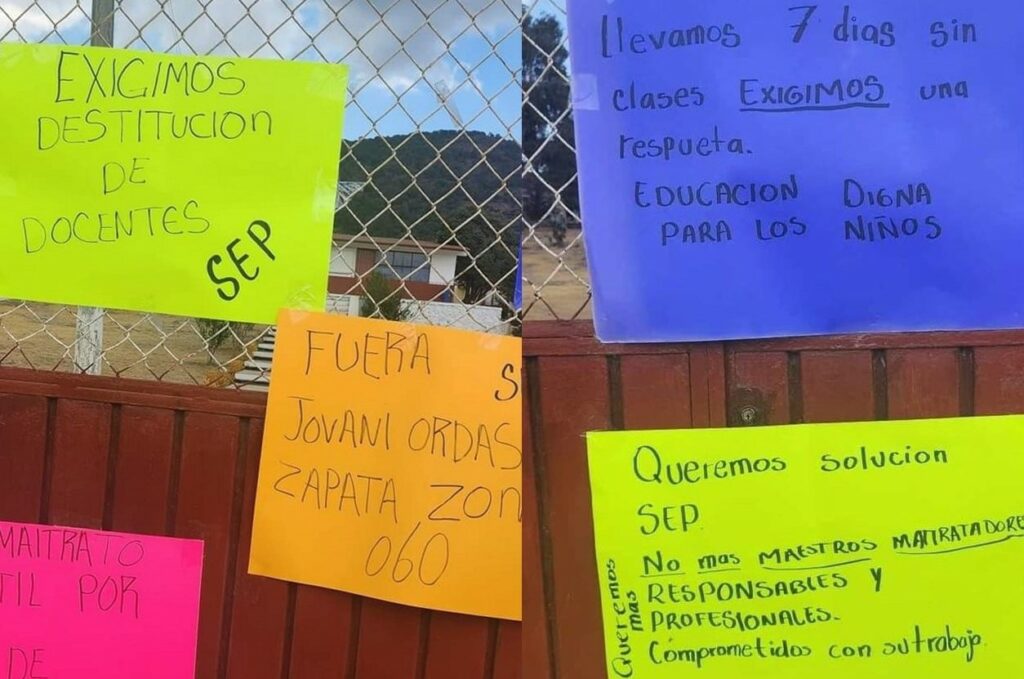 EXIGIMOS
DESTITUCION
DE
DOCENTES
SEP
FUERA
S
JOVANI ORDAS
ZAPATA ZON
060
MALTRATO
TIL POR
DE
llevamos 7 dias sin
clases EXIGIMOS una
respueta.
EDUCACION DIGNA
PARA LOS NIÑOS
Queremos solucion
SEP.
No mas MAESTROS MALTRATADORE
Queremos
mas
RESPONSABLES Y
PROFESIONALES.
Comprometidos con su trabajo.